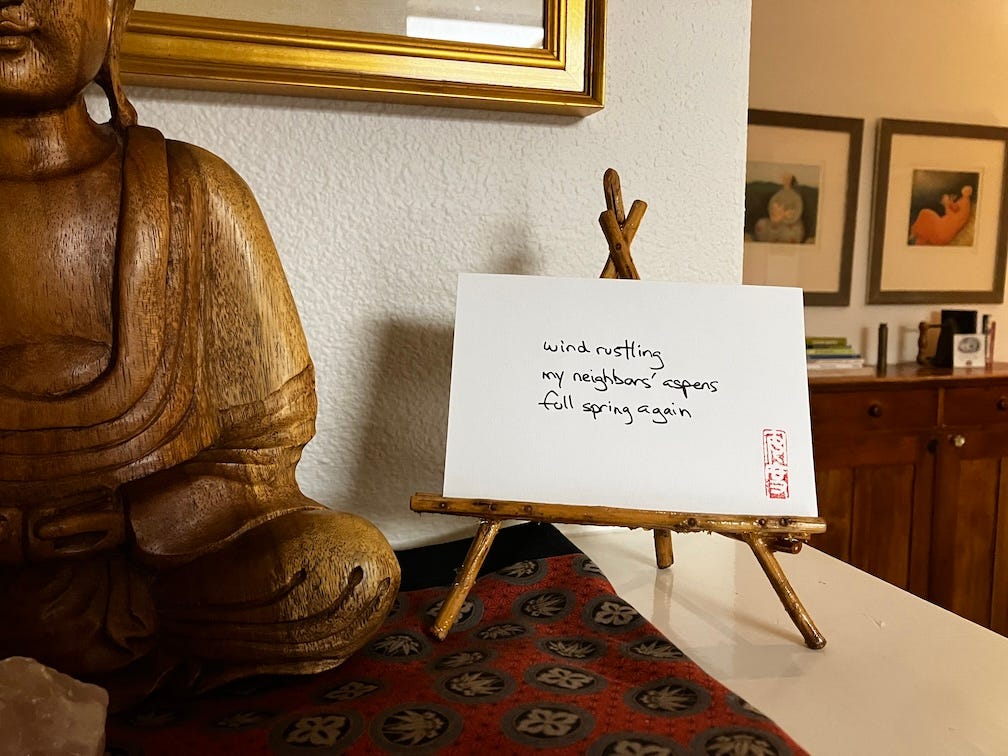 wind rustling
my neighbors' aspens
full spring again